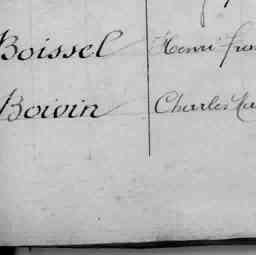 Boissel Henri
Boivin Charles